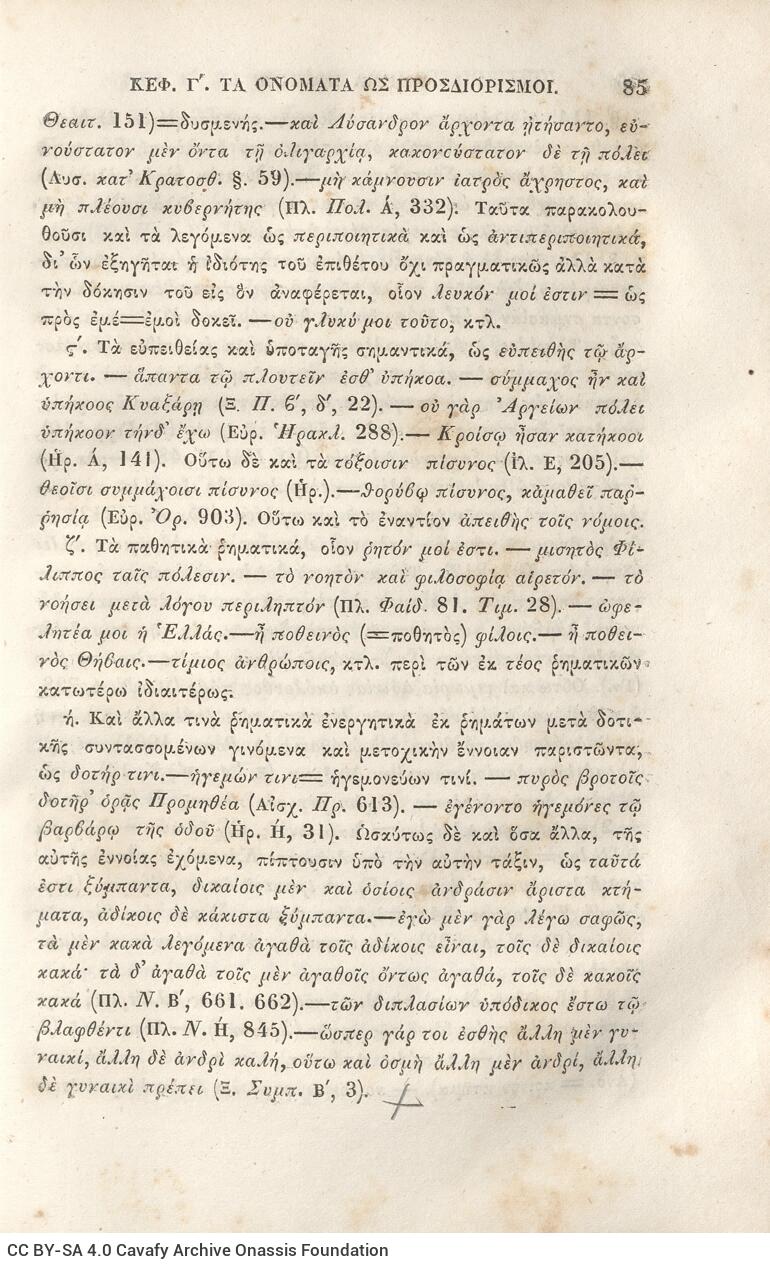 ΚΕΦ. Γʹ. ΤΑ ΟΝΟΜΑΤΑ ΩΣ ΠΡΟΣΔΙΟΡΙΣΜΟΙ. 85
Θεαιτ. 151)=δυσμενής.—καὶ Λύσανδρον ἄρχοντα ᾐτήσαντο, εὐ-
νούστατον μὲν ὄντα τῇ ὀλιγαρχίᾳ, κακονούστατον δὲ τῇ πόλει
(Λυσ. κατ' Κρατοσθ. §. 59).—μὴ κάμνουσιν ἰατρὸς ἄχρηστος, καὶ
μὴ πλέουσι κυβερνήτης (Πλ. Πολ. Ά, 332). Ταῦτα παρακολου-
θοῦσι καὶ τὰ λεγόμενα ὡς περιποιητικὰ καὶ ὡς ἀντιπεριποιητικά,
δι' ὧν ἐξηγῆται ἡ ἰδιότης τοῦ ἐπιθέτου ὄχι πραγματικῶς ἀλλὰ κατὰ
τὴν δόκησιν τοῦ εἰς ὃν ἀναφέρεται, οἷον λευκόν μοί ἐστιν = ὡς
πρὸς ἐμέ=ἐμοὶ δοκεῖ. —οὐ γλυκύ μοι τοῦτο, κτλ.
ςʹ. Τὰ εὐπειθείας καὶ ὑποταγῆς σημαντικά, ὡς εὐπειθὴς τῷ ἄρ-
χοντι. — ἅπαντα τῷ πλουτεῖν ἐσθ' ὑπήκοα. — σύμμαχος ἦν καὶ
ὑπήκοος Κυαξάρῃ (Ξ. Π. ϐʹ, δʹ, 22). — οὐ γὰρ Ἀργείων πόλει
ὑπήκοον τήνδ' ἔχω (Εὐρ. Ἡρακλ. 288).— Κροίσῳ ἦσαν κατήκοοι
(Ἡρ. Ά, 141). Οὕτω δὲ καὶ τὰ τόξοισιν πίσυνος (Ἰλ. Ε, 205).—
θεοῖσι συμμάχοισι πίσυνος (Ἡρ.).—θορύβῳ πίσυνος, κἀμαθεῖ παῤ-
ῥησίᾳ (Εὐρ. Ὀρ. 903). Οὕτω καὶ τὸ ἐναντίον ἀπειθὴς τοῖς νόμοις.
ζʹ. Τὰ παθητικὰ ῥηματικά, οἷον ῥητόν μοί ἐστι. — μισητὸς Φί-
λιππος ταῖς πόλεσιν. — τὸ νοητὸν καὶ φιλοσοφίᾳ αἱρετόν. — τὸ
νοήσει μετὰ λόγου περιληπτόν (Πλ. Φαίδ. 81. Τιμ. 28). — ὠφε-
λητέα μοι ἡ Ἑλλάς.—ἦ ποθεινὸς (=ποθητὸς) φίλοις.— ἦ ποθει-
νὸς Θήβαις.—τίμιος ἀνθρώποις, κτλ. περὶ τῶν ἐκ τέος ῥηματικῶν
κατωτέρω ἰδιαιτέρως.
ή. Καὶ ἄλλα τινὰ ῥηματικὰ ἐνεργητικὰ ἐκ ῥημάτων μετὰ δοτι-
κῆς συντασσομένων γινόμενα καὶ μετοχικὴν ἔννοιαν παριστῶντα,
ὡς δοτήρ τινι.—ἡγεμών τινι= ἡγεμονεύων τινί. — πυρὸς βροτοῖς
δοτῆρ' ὁρᾷς Προμηθέα (Αἰσχ. Πρ. 613). — ἐγένοντο ἡγεμόνες τῷ
βαρβάρῳ τῆς ὁδοῦ (Ἡρ. Ή, 31). Ὡσαύτως δὲ καὶ ὅσα ἄλλα, τῆς
αὐτῆς ἐννοίας ἐχόμενα, πίπτουσιν ὑπὸ τὴν αὐτὴν τάξιν, ὡς ταῦτά
ἐστι ξύμπαντα, δικαίοις μὲν καὶ ὁσίοις ἀνδράσιν ἄριστα κτή-
ματα, ἀδίκοις δὲ κάκιστα ξύμπαντα.—ἐγὼ μὲν γὰρ λέγω σαφῶς,
τὰ μὲν κακὰ λεγόμενα ἀγαθὰ τοῖς ἀδίκοις εἶναι, τοῖς δὲ δικαίοις
κακά· τὰ δ' ἀγαθὰ τοῖς μὲν ἀγαθοῖς ὄντως ἀγαθά, τοῖς δὲ κακοῖς
κακά (Πλ. Ν. Βʹ, 661. 662).—τῶν διπλασίων ὑπόδικος ἔστω τῷ
βλαφθέντι (Πλ. Ν. Ή, 845).—ὥσπερ γάρ τοι ἐσθὴς ἄλλη μὲν γυ-
ναικί, ἄλλη δὲ ἀνδρὶ καλή, οὕτω καὶ ὀσμὴ ἄλλη μὲν ἀνδρί, ἄλλη
δὲ γυναικὶ πρέπει (Ξ. Συμπ. Βʹ, 3).
CC BY-SA 4.0 Cavafy Archive Onassis Foundation